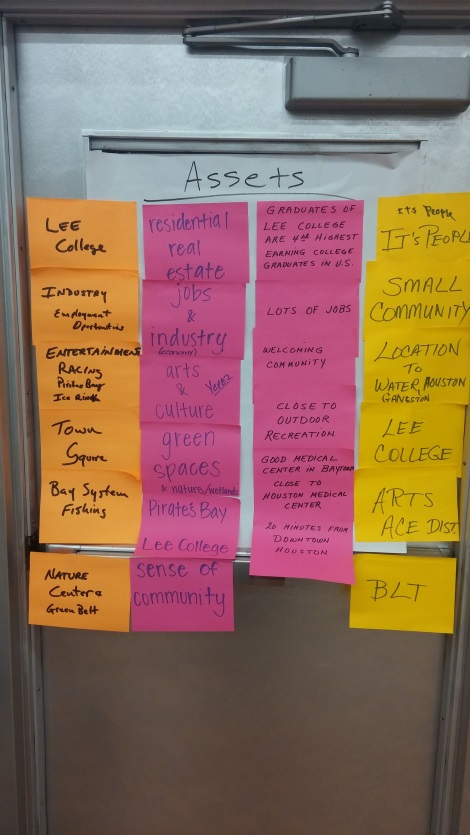 Assets
LEE
College
INDUSTRY
Employment
Opportunities
ENTERTAINMENT
RACING
Pirates Bay
Ice Rink
Town
Square
Bay System
Fishing
NATURE
Center &
Green Belt
residential
real
estate
jobs
&
industry
(economy)
arts
&
culture
green
spaces
& nature/wetlands
Pirate's Bay
Lee College
sense of
community
GRADUATES OF
LEE COLLEGE
ARE 4th HIGHEST
EARNING COLLEGE
GRADUATES IN U.S.
LOTS OF JOBS
WELCOMING
COMMUNITY
CLOSE TO
OUTDOOR
RECREATION
GOOD MEDICAL
CENTER IN BAYTOWN
CLOSE TO
HOUSTON MEDICAL
CENTER
20 MINUTES FROM
DOWNTOWN
HOUSTON
Its People
IT'S PEOPLE
SMALL
COMMUNITY
LOCATION
TO
WATER, HOUSTON
LEE
COLLEGE
ARTS
ACE DIST.
BLT